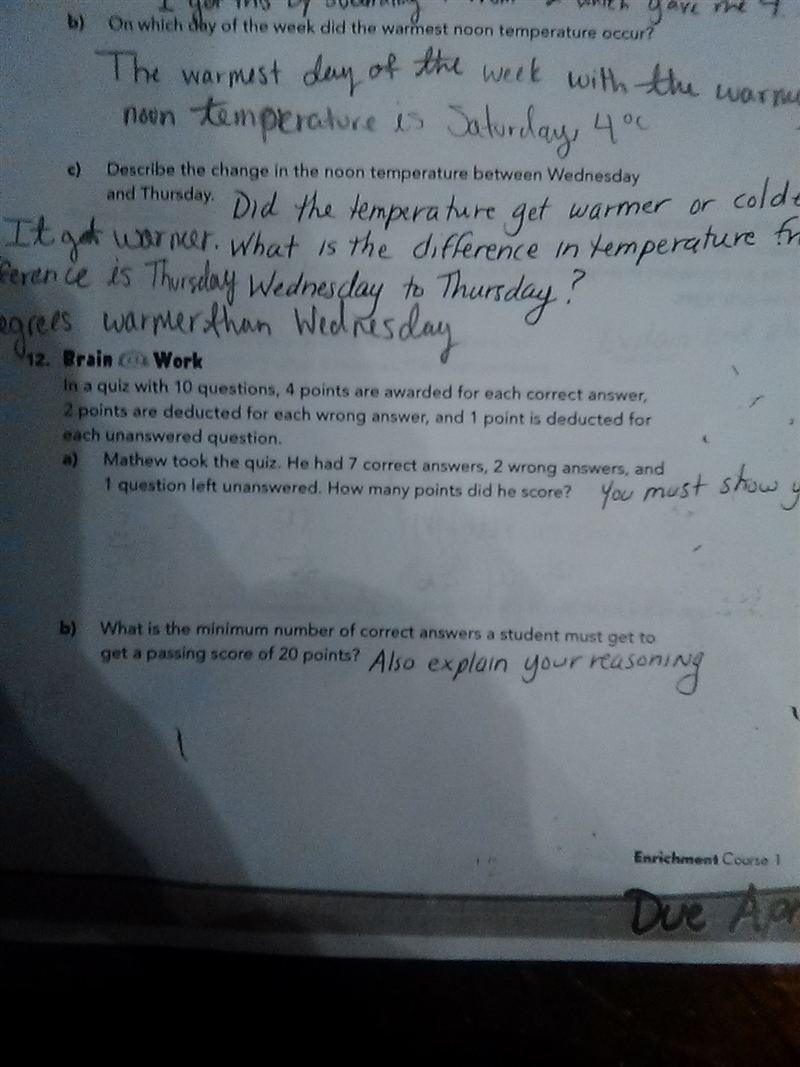 which gave me 4
b) On which day of the week did the warmest noon temperature occur?
The warmest day of the week with the
noon temperature is Saturday, 4°c
c) Describe the change in the noon temperature between Wednesday
and Thursday. Did the temperature get warmer or
It got warmer. What is the difference in temperature
is Thursday Wednesday to Thursday?
warmer than Wednesday
12. Brain Work
In a quiz with 10 questions, 4 points are awarded for each correct answer,
2 points are deducted for each wrong answer, and 1 point is deducted for
each unanswered question.
a) Mathew took the quiz. He had 7 correct answers, 2 wrong answers, and
1 question left unanswered. How many points did he score? You must show
b) What is the minimum number of correct answers a student must get to
get a passing score of 20 points? Also explain your reasoning
Enrichment Course 1
Due